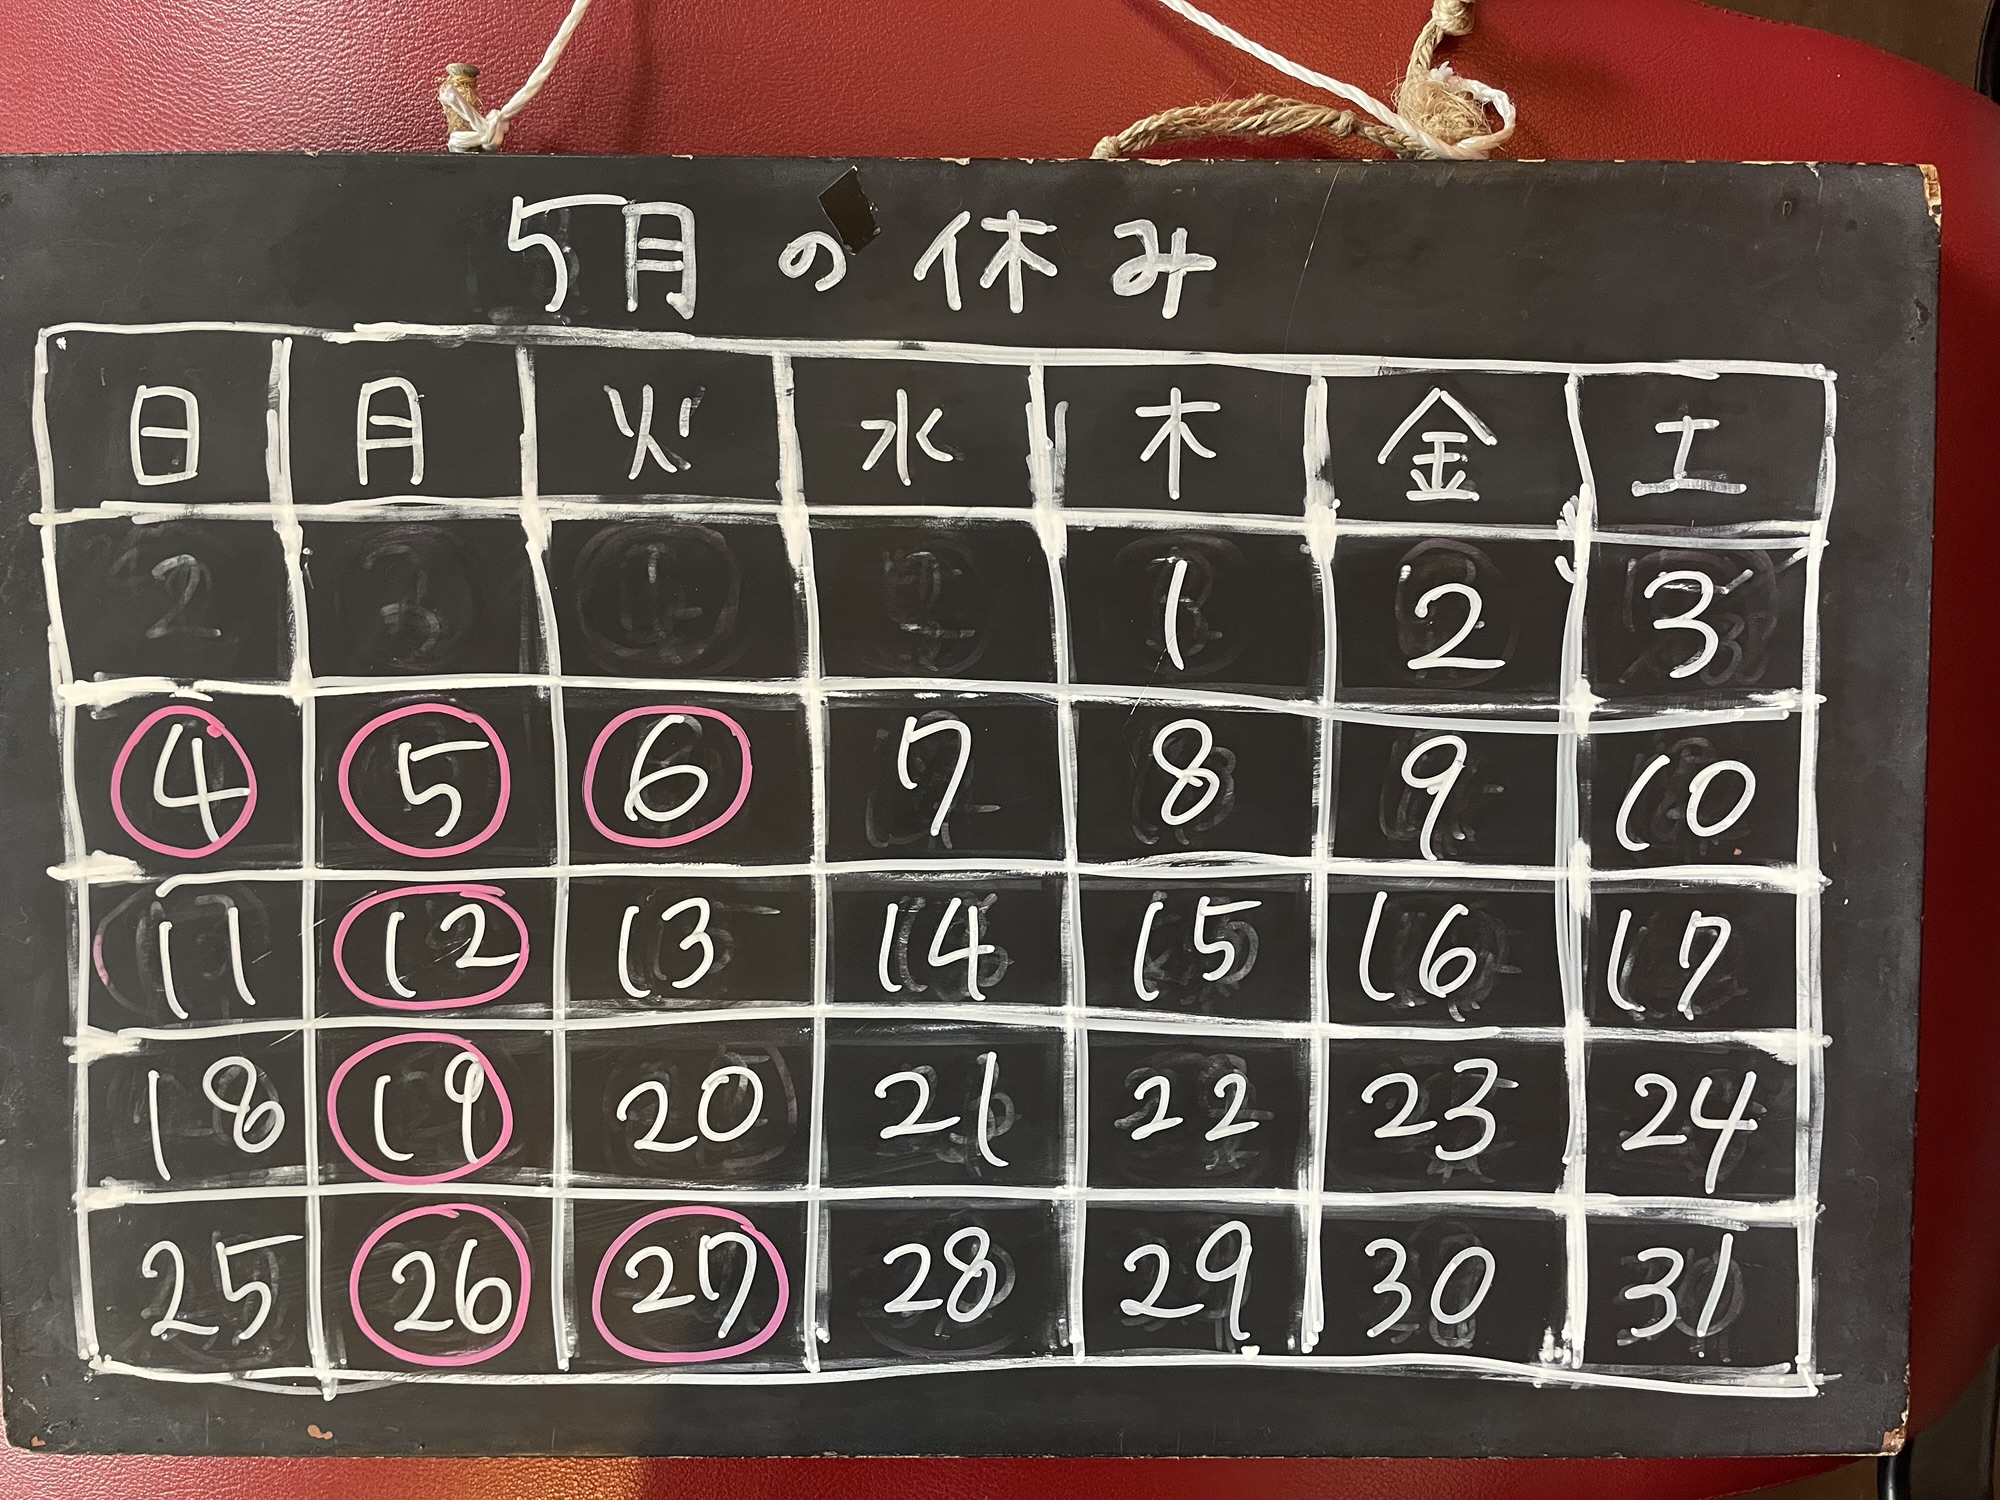 5月の休み
日 月 火 水 木 金 土
1 2 3
4 5 6 7 8 9 10
11 12 13 14 15 16 17
18 19 20 21 22 23 24
25 26 27 28 29 30 31